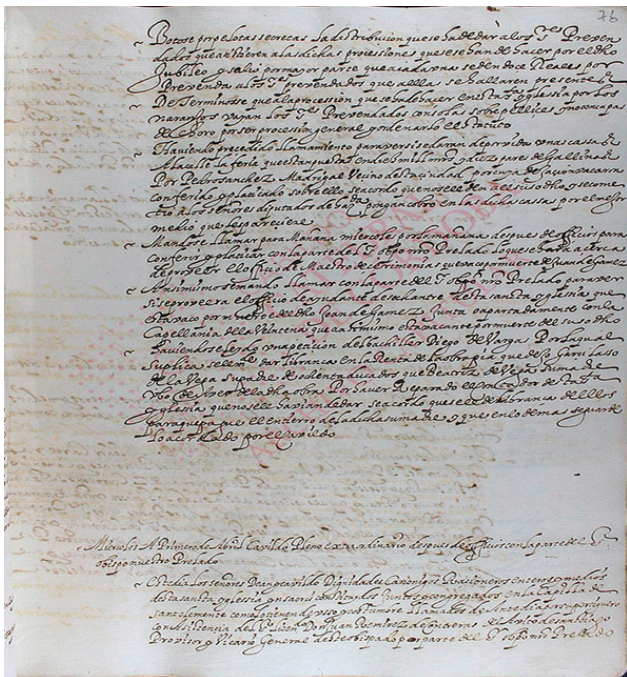 76
Botose por pelotas secretas la distribucion que se ha de dar a los S.res Preven
dados que asistieren a las dichas processiones que se han de hacer por el dho
Jubileo y salio por mayor parte que a cada una se den doce Reales por
Prevenda a los S.res prevendados que a ella se hallaren presentes
Determinose que a la procession que se ha de hacer en esta s.ta yglesia por los
vayan los S.res Prevendados con solas sobrepellices y no con capas
del choro por ser procession general y ordenarlo el Statuto
Haviendo precedido llamamiento para ver si se daran de por vida unas cassas
A la calle la feria que estan puestas en diez mill y diez pares de Gallinas
Por Pedro sanchez Madrigal Vezino desta ciudad
conferido y platicado sobre ello se acordo que no se le den al susodho y se come
tio a los señores diputados de pongan cobro en la dicha cassa por el mejor
medio que les pareciere
Mandose llamar para Mañana miercoles por la mañana despues de officios para
conferir y platicar con la parte del S.r obpo nro Prelado lo que se hara acerca
de proveer el officio de Maestro de Cerimonias que vaco por muerte de Juan de Gamez
Assimismo se mando llamar con la parte del S.r obpo nro Prelado para ver
si se proveera el officio de ayudante de sachantre desta sancta yglesia que
vaco por muerte del dho Joan de Gamez Junta o apartadamente con la
Capellania de la Veintena que assimismo esta vacante por muerte del susodho
Haviendose leydo una peticion del bachiller Diego de Vargas Por la qual
suplica se le mande dar librança en la Renta de las obra pia que dexo Garcilasso
de la Vega su padre de ochenta ducados que Beatriz de Vega su madre
de la dha obra Por haver Reparado el de sancta
yglesia que no se le havian de dar se acordo que se le de librança dellos
para que pague el entierro de la dicha su madre y que en lo demas se guarde
lo acordado por el cavildo
Miercoles A Primero de Abril Cavildo Pleno extraordinario despues de officios con la parte del S.r
obispo nuestro Prelado
Este dia los señores Dean y cavildo Dignidades Canonigos Racioneros enteros y medios
desta sancta yglesia en sacris constituydos Juntos y congregados en la Capilla de
san clemente como lo tienen de uso y costumbre llamados de Ante dia por su pertiguero
con Asistencia del S.r licen.do Don Juan Ramirez de Contreras del Avito de santiago
Provisor y Vicario General deste obispado por parte del S.r obpo nro Prelado